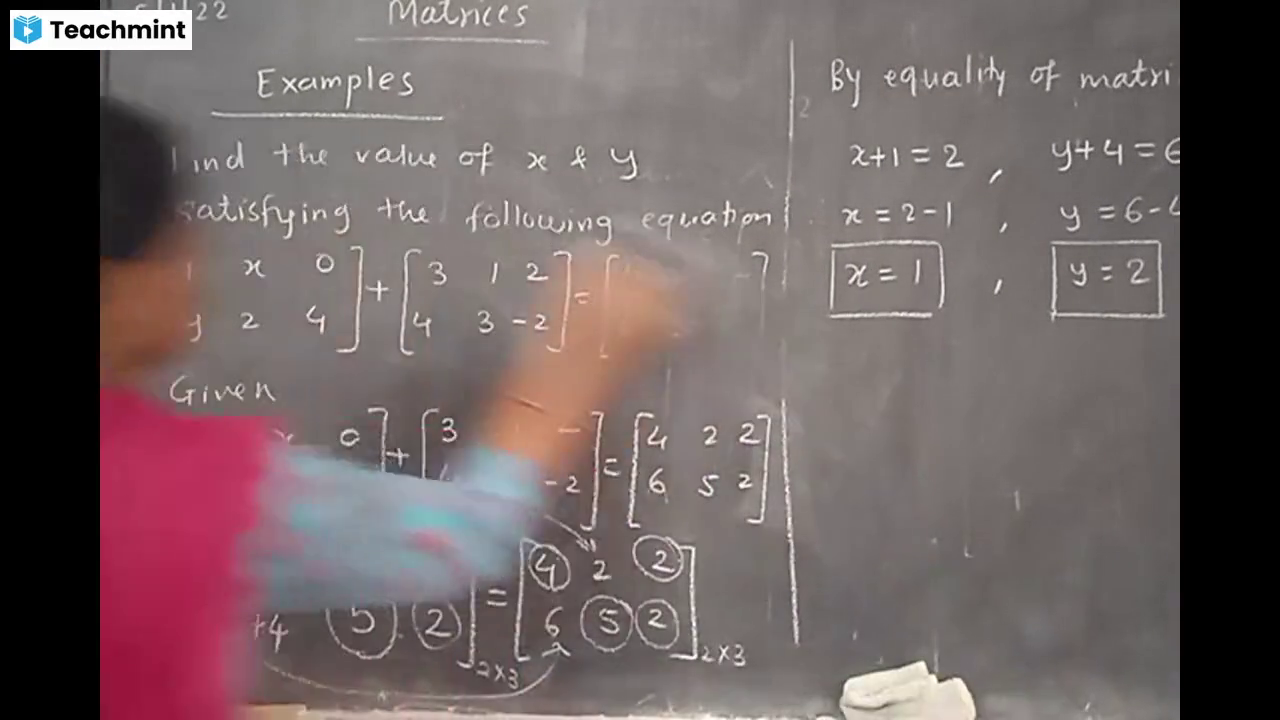 Teachmint
22
Matrices
Examples
Find the value of x & y
satisfying the following equation
1 x 0 ] + [ 3 1 2 ] = [
y 2 4 ] + [ 4 3 -2 ]
Given
x 0 ] + [ 3 ] = [ 4 2 2 ]
-2 ] = [ 6 5 2 ]
= [ 4 2 2 ]
+4 5 2 ] 2×3 = [ 6 5 2 ] 2×3
By equality of matri
x+1 = 2 , y+4 = 6
x = 2-1 , y = 6-4
x = 1 , y = 2